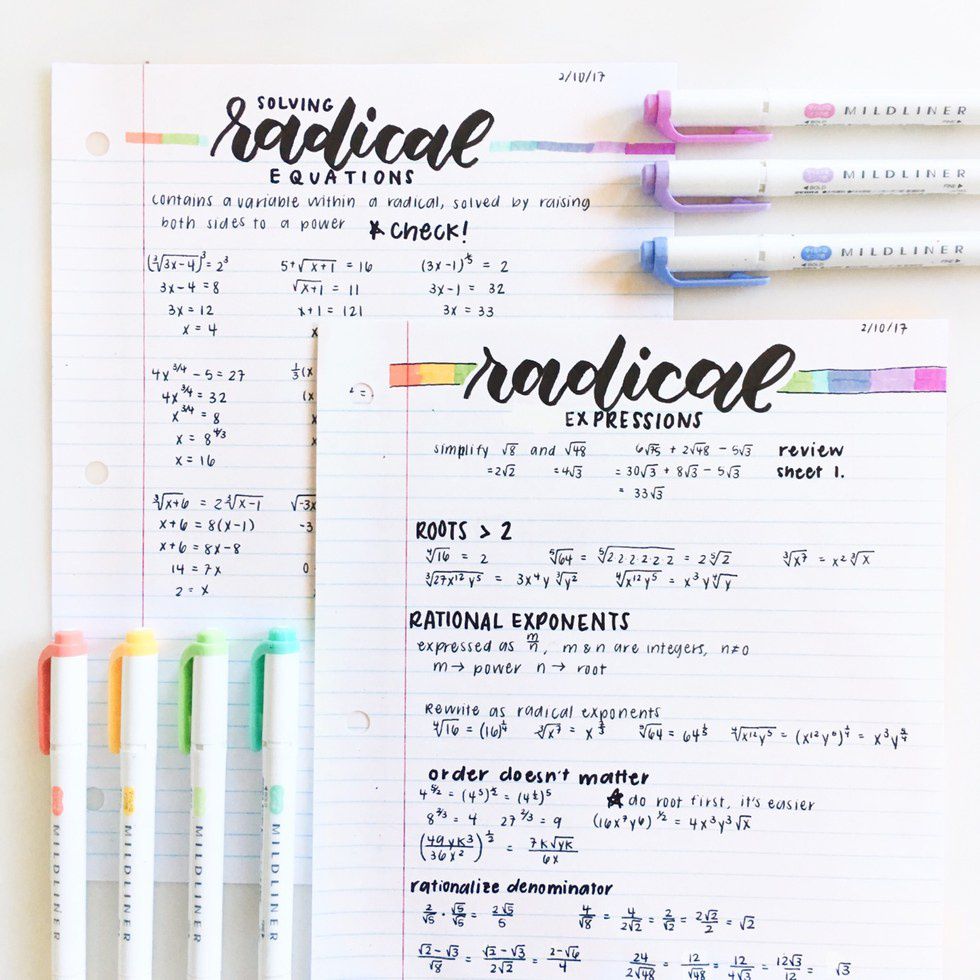 2/10/17
SOLVING
radical
EQUATIONS
contains a variable within a radical, solved by raising
both sides to a power ★ check!
(∛(3x-4))³ = 2³
3x-4 = 8
3x = 12
x = 4
5+√(x+1) = 16
√(x+1) = 11
x+1 = 121
x
(3x-1)^(1/5) = 2
3x-1 = 32
3x = 33
4x^(3/4) - 5 = 27
4x^(3/4) = 32
x^(3/4) = 8
x = 8^(4/3)
x = 16
∛(x+6) = 2∛(x-1)
x+6 = 8(x-1)
x+6 = 8x-8
14 = 7x
2 = x
√-3x
-3
0
2/10/17
radical
EXPRESSIONS
simplify √8 and √48
=2√2 =4√3
6√75 + 2√48 - 5√3
= 30√3 + 8√3 - 5√3
= 33√3
review
sheet 1.
ROOTS > 2
⁴√16 = 2 ⁵√64 = ⁵√(2·2·2·2·2·2) = 2⁵√2 ∛(x⁷) = x²∛x
∛(27x¹²y⁵) = 3x⁴y∛(y²) ⁴√(x¹²y⁵) = x³y⁴√y
RATIONAL EXPONENTS
expressed as m/n, m & n are integers, n≠0
m → power n → root
Rewrite as radical exponents
⁴√16 = (16)^(1/4) ∛(x⁷) = x ⁵√64 = 64^(1/5) ⁴√(x¹²y⁵) = = x³y
order doesn't matter
4^(5/2) = (4⁵)^(1/2) = (4^(1/2))⁵ ★ do root first, it's easier
8^(2/3) = 4 27^(2/3) = 9 (16x⁷y⁶)^(1/2) = 4x³y³√x
(49yk³/36x²)^(1/2) = 7k√yk/6x
rationalize denominator
2/√5 · √5/√5 = 2√5/5 4/√8 = 4/2√2 = 2/√2 = 2√2/2 = √2
(√2-√3)/√8 = (√2-√3)/2√2 = (2-√6)/4 24/2√48 = 12/√48 = 12/4√3 = 12√3/12 = √3
MILDLINER
MILDLINER
MILDLINER
MILDLINER
MILDLINER
MILDLINER
MILDLINER
BOLD
FINE
BOLD
FINE
BOLD
FINE